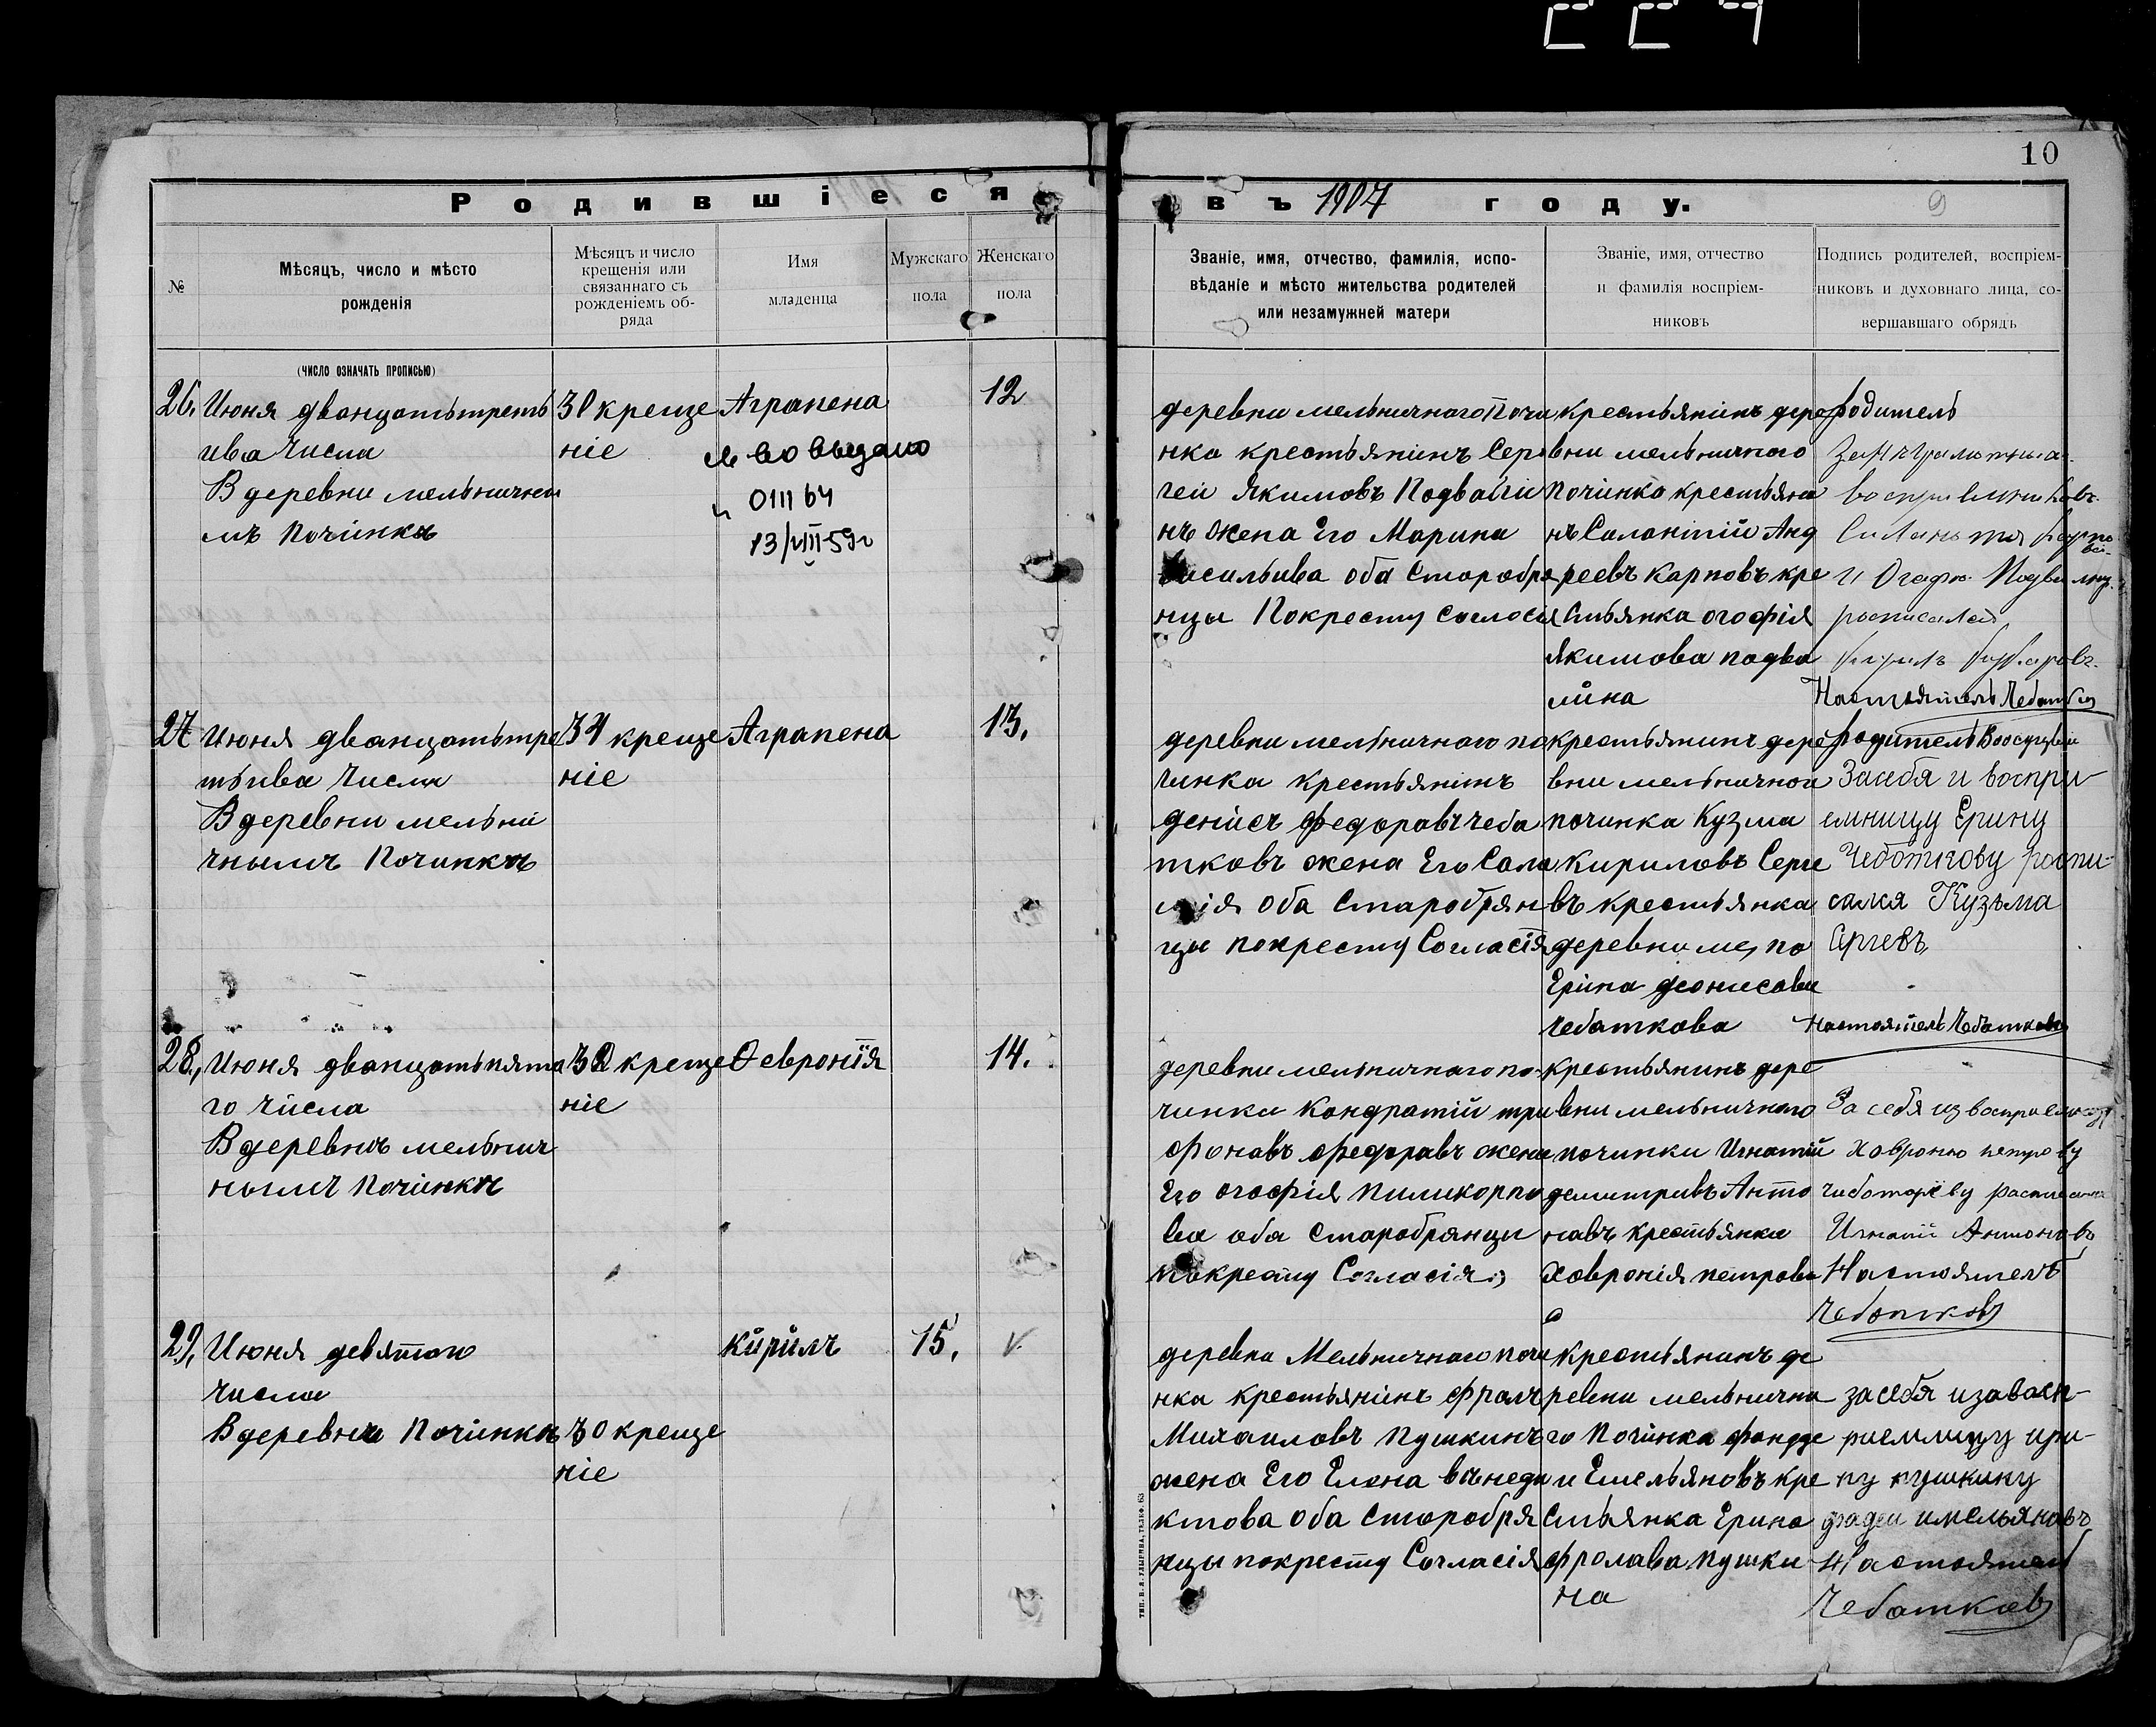 10
Родившіеся
въ 1907 году.
9
№
Мѣсяцъ, число и мѣсто
рожденія
Мѣсяцъ и число
крещенія или
связаннаго съ
рожденіемъ об-
ряда
Имя
младенца
Мужскаго
пола
Женскаго
пола
Званіе, имя, отчество, фамилія, испо-
вѣданіе и мѣсто жительства родителей
или незамужней матери
Званіе, имя, отчество
и фамилія воспріем-
никовъ
Подпись родителей, воспріем-
никовъ и духовнаго лица, со-
вершавшаго обрядъ
(число означать прописью)
26. Июня дванцатьтреть
ива Числа
В деревни мельнични
мъ Починкѣ
30 креще
ніе
Аграпена
св во выдано
0111 64
13/VIII-59г
12
деревни мельничного Почи
нка крестьянинъ Сер
геи Якимовъ Подвали
нъ жена Его Марина
Васильива оба Старобря
нцы Покресту Согласія
крестьянинъ дере
вни мельничного
Починка крестьяни
нъ Салантій Анд
реевъ Карповъ кре
Стьянка огофія
Якимова подва
лина
родитель
росписался
Настоятель Чебатков
27 Июня дванцатьтре
тьива Числа
В деревни мельни
чнымъ Починкѣ
31 креще
ніе
Аграпена
13.
деревни мельничного по
чинка крестьянинъ
денисъ Федоравъ чеба
тковъ жена Его Сало
мія оба Старобрян
цы покресту Согласія
крестьянинъ дере
вни мельничнои
починка Кузма
Кириловъ Серге
въ крестьянка
деревни ме, по
Еріна деонисова
Чебаткова
родитель
Засебя и воспри-
емницу Ерину
Чеботкову роспи-
сался Кузьма
Сргевъ
настоятель Чебатков
28., Июня дванцатьпята
го числа
В деревнѣ мельнич
нымъ Починкѣ
30 креще
ніе
Ѳевронїя
14.
деревни мельничного по-
чинка Кондратій три
фонавъ федоравъ жена
Его огофія пиликорпо
ва оба Старобрянци
покресту Согласія
крестьянинъ дере
вни мельничного
починки Игнатій
демитривъ Анто
навъ крестьянка
Ховронія петрова
За себя
ховронью петрову
Игнатіі Антоновъ
Настоятель
Чебатков
29. Июня девятого
числа
В деревни Починкѣ
30 креще
ніе
кирилъ
15.
V.
деревна Мельничного почи
нка крестьянинъ фролъ
Михаиловъ пушкинъ
жена Его Елена венеди
ктова оба Старобря
нцы покресту Согласія
Крестьянинъ де
ревни мельнична
го Починка фадде
и Емельяновъ кре
Стьянка Ерина
фролава пушки
на
засебя изавасп-
риемницу ири-
ну пушкину
фадеи имельяновъ
Настоятель
Чебатков